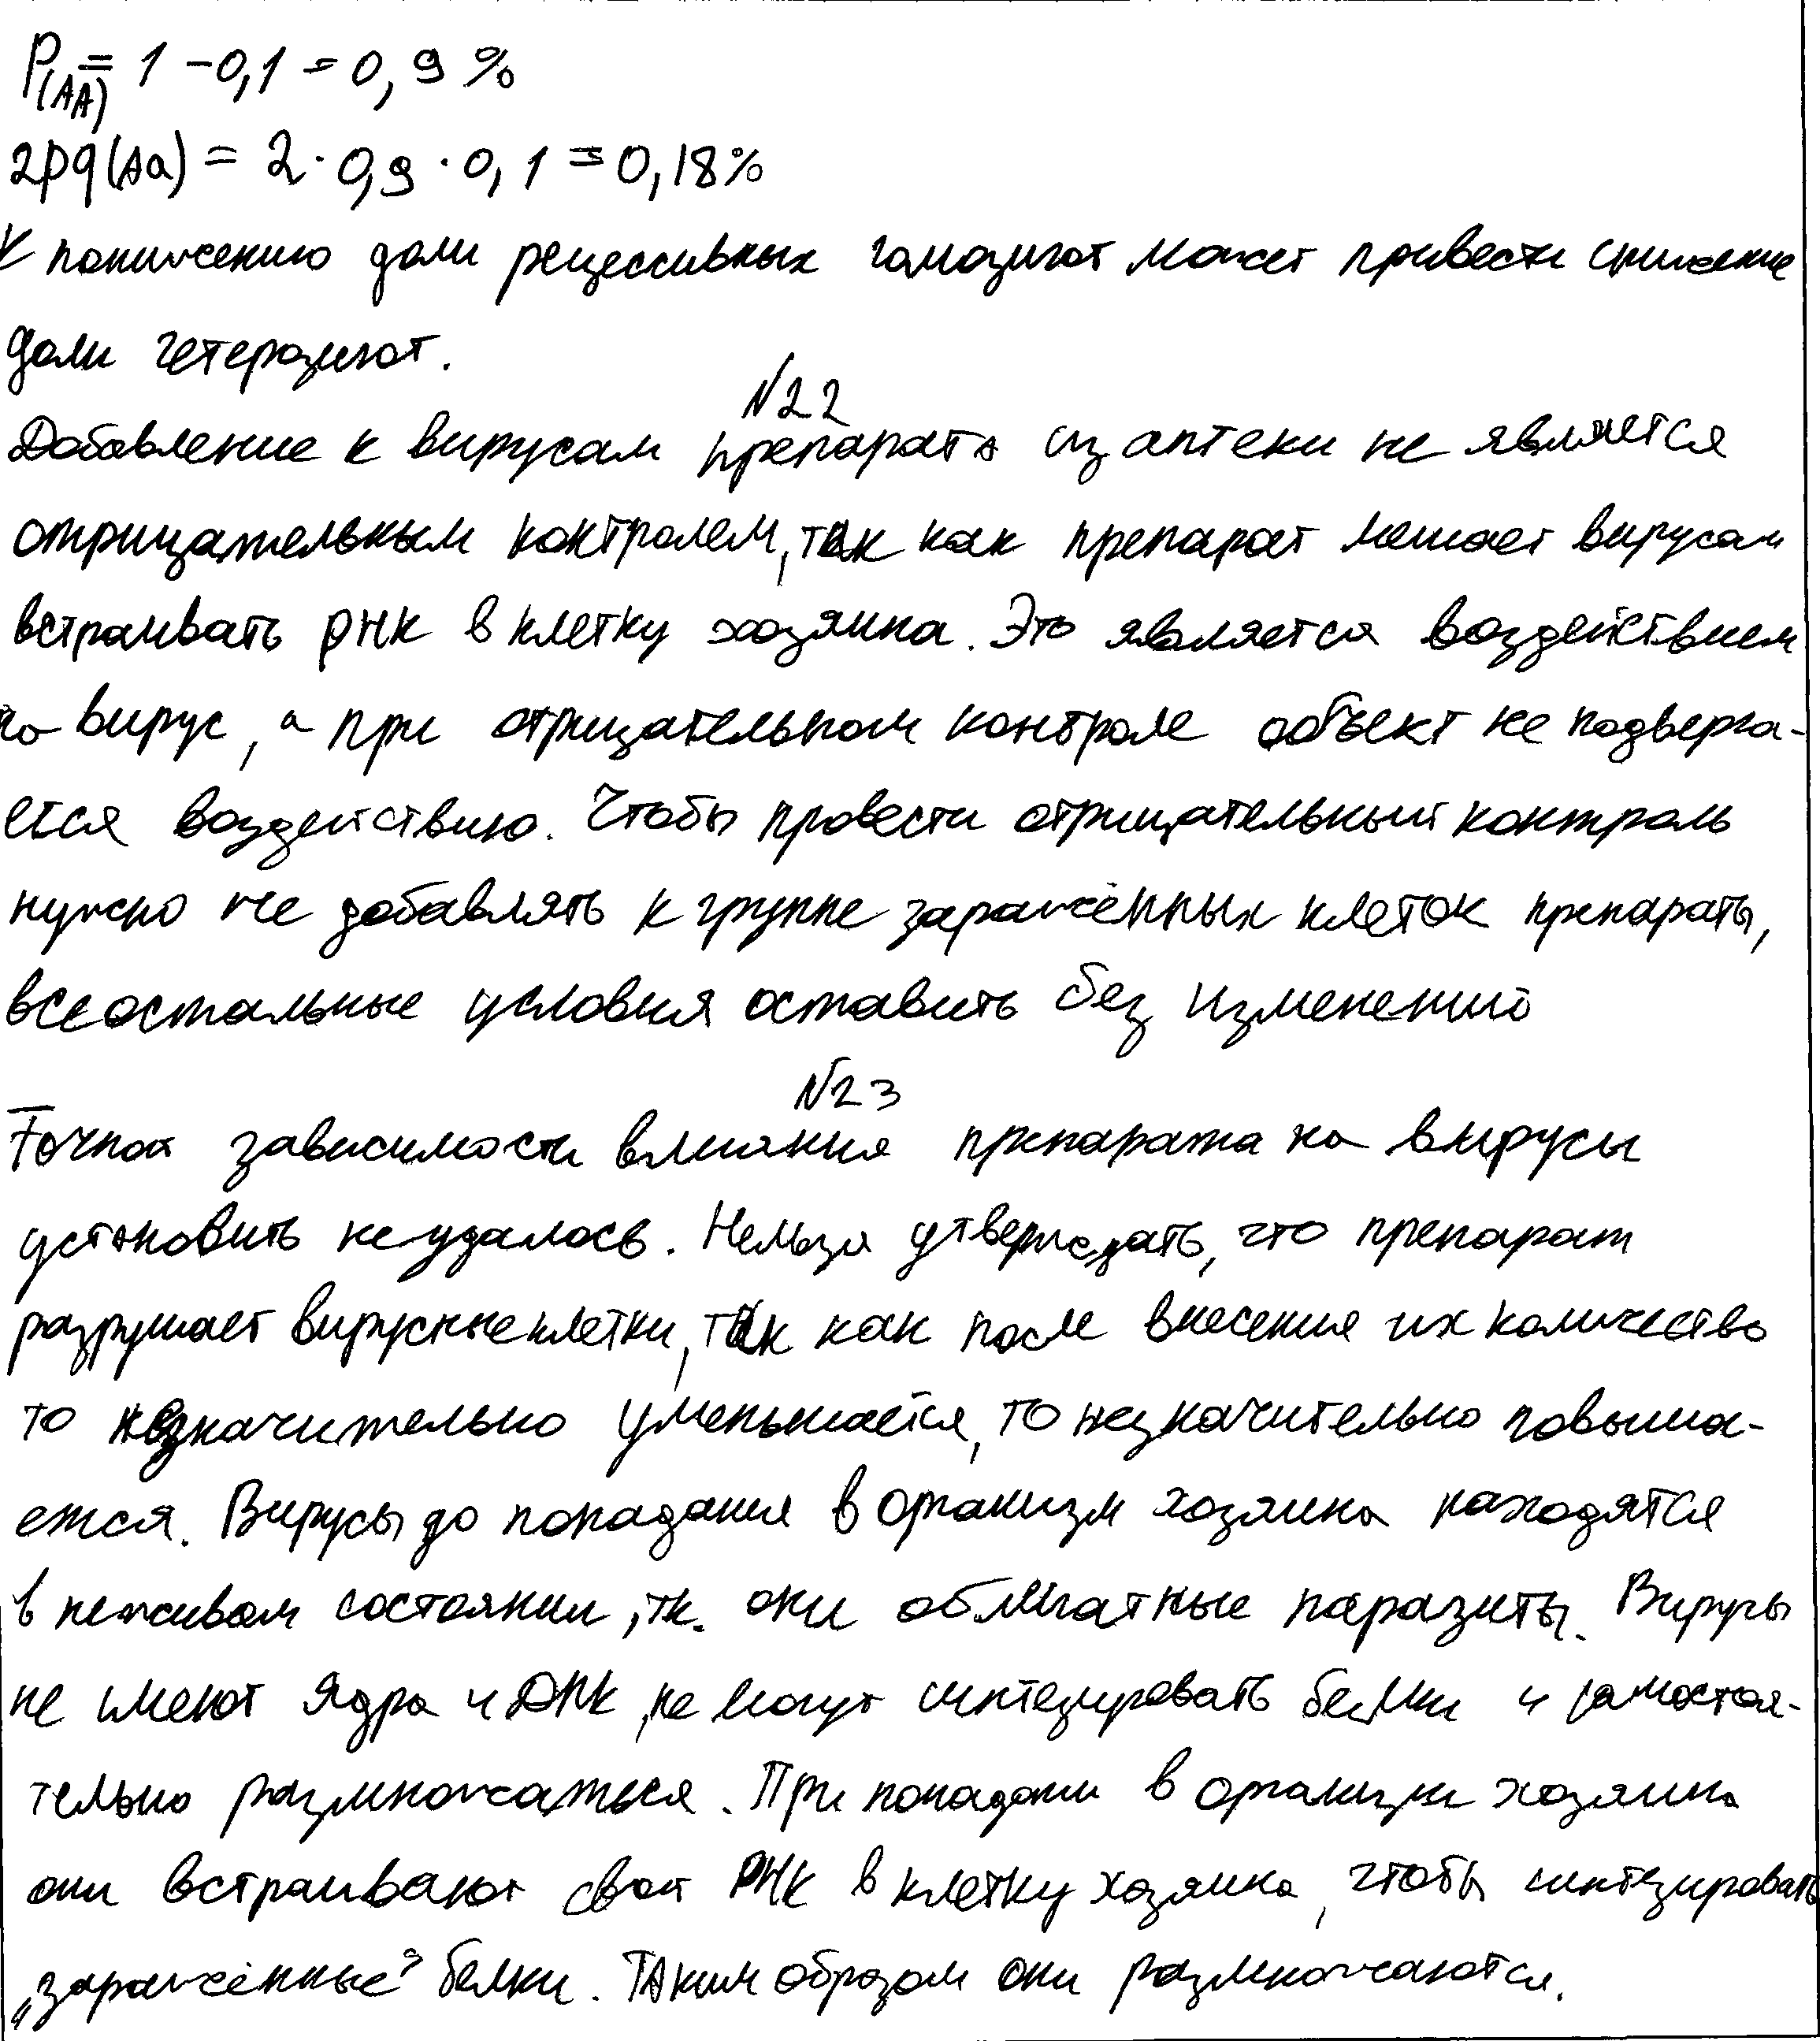 P(AA) = 1 - 0,1 = 0,9 %
2pq(Aa) = 2 · 0,9 · 0,1 = 0,18%
К понижению доли рецессивных гомозигот может привести снижение
доли гетерозигот.
№22
Добавление к вирусам препарата из аптеки не является
отрицательным контролем, так как препарат мешает вирусам
встраивать РНК в клетку хозяина. Это является воздействием
на вирус, а при отрицательном контроле объект не подверга-
ется воздействию. Чтобы провести отрицательный контроль
нужно не добавлять к группе заражённых клеток препараты,
все остальные условия оставить без изменений
№23
Точной зависимости влияния препарата на вирусы
установить не удалось. Нельзя утверждать, что препарат
разрушает вирусные клетки, так как после внесения их количество
то незначительно уменьшается, то незначительно повыша-
ется. Вирусы до попадания в организм хозяина находятся
в неживом состоянии, тк. они облигатные паразиты. Вирусы
не имеют ядра и ДНК, не могут синтезировать белки и самостоя-
тельно размножаться. При попадании в организм хозяина
они встраивают свои РНК в клетку хозяина, чтобы синтезировать
"заражённые" белки. Таким образом они размножаются.